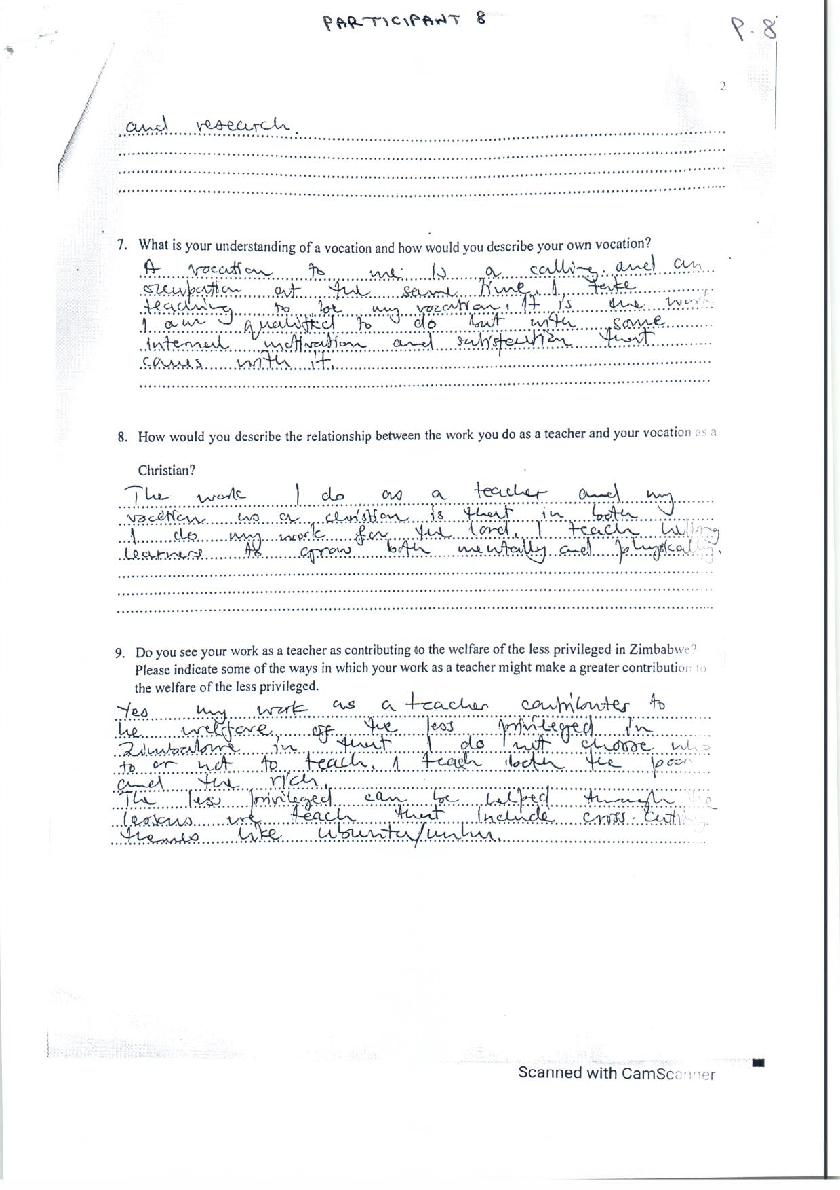 PARTICIPANT 8
P.8
2
and research.
7. What is your understanding of a vocation and how would you describe your own vocation?
A vocation to me is a calling and an
occupation at the same time. I take
teaching to be my vocation. It is the work
I am qualified to do but with some
internal motivation and satisfaction that
comes with it.
8. How would you describe the relationship between the work you do as a teacher and your vocation as a
Christian?
The work I do as a teacher and my
vocation as a christian is that in both
I do my work for the Lord. I teach helping
learners to grow both mentally and physically.
9. Do you see your work as a teacher as contributing to the welfare of the less privileged in Zimbabwe?
Please indicate some of the ways in which your work as a teacher might make a greater contribution to
the welfare of the less privileged.
Yes my work as a teacher contributes to
he welfare of the less privileged in
Zimbabwe in that I do not choose who
to or not to teach. I teach both the poor
and the rich.
The less privileged can be helped through the
lessons we teach that include cross-cutting
themes like ubuntu/unhu.
Scanned with CamScanner